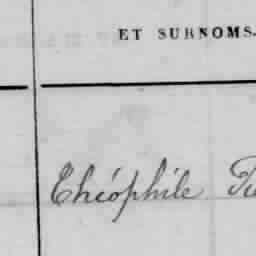 ET SURNOMS.
Théophile